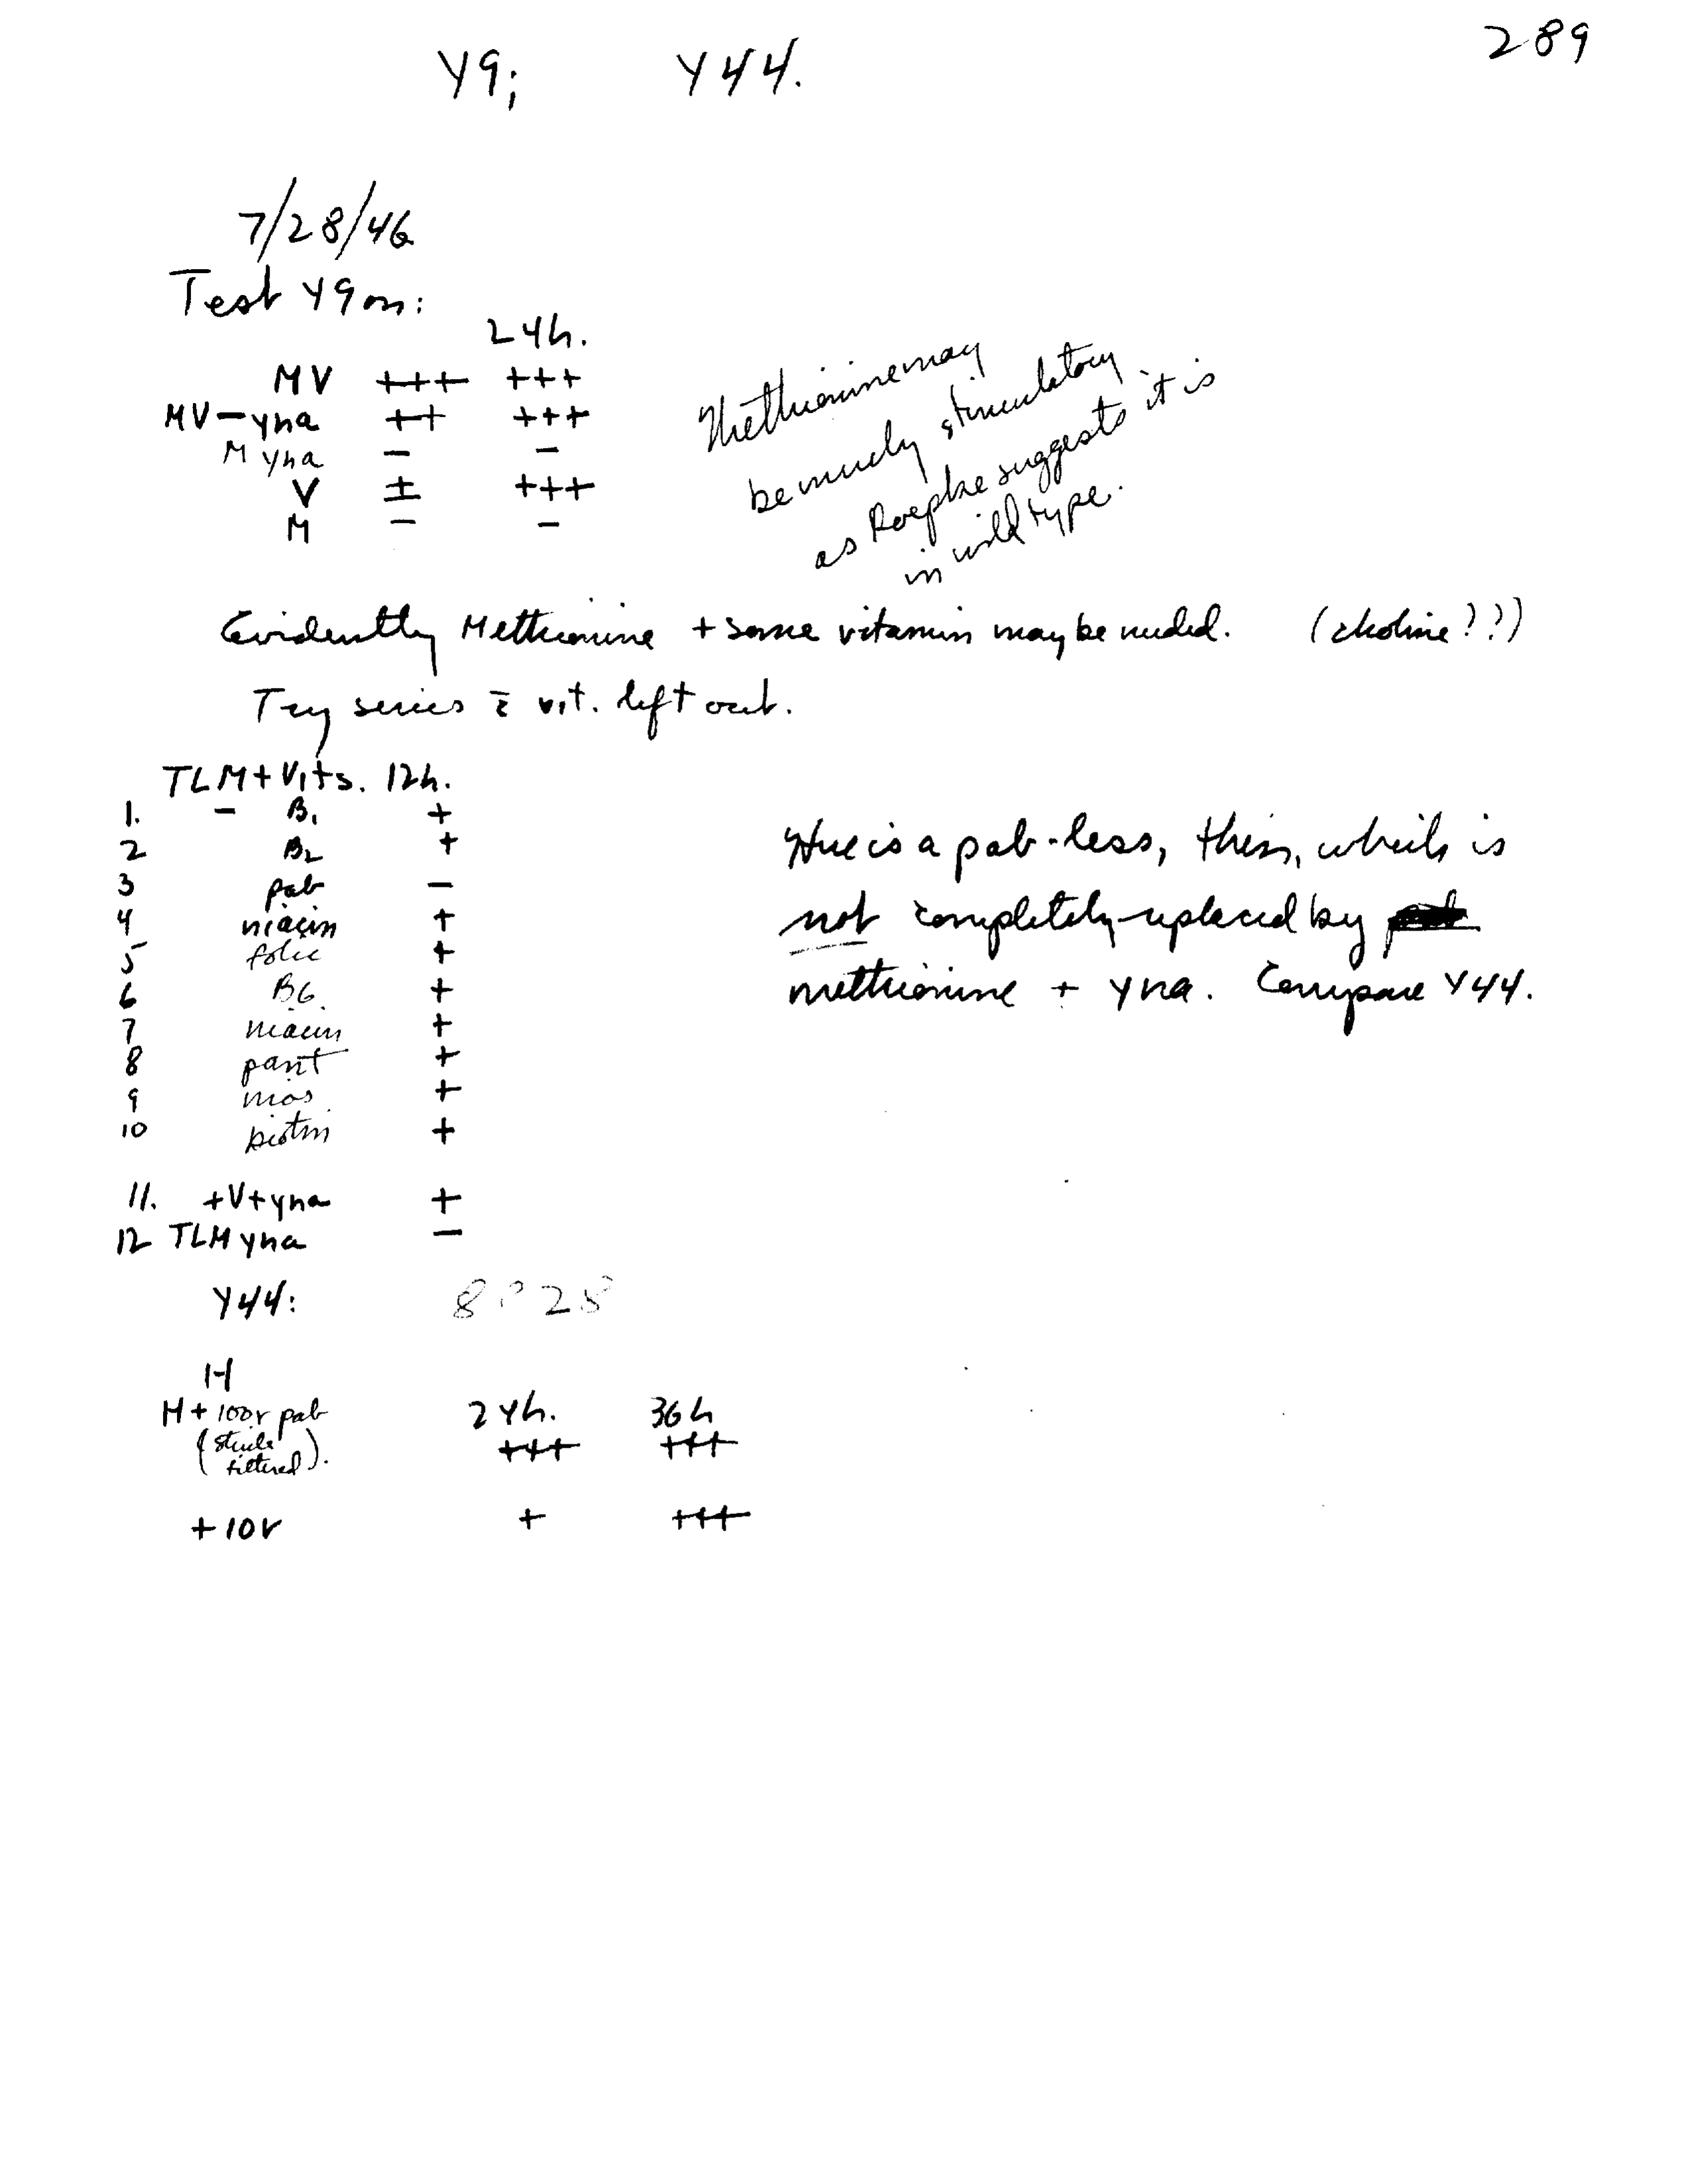 289
Y9; Y44.
7/28/46
Test Y9 on:
24h.
MV +++ +++
MV-yna ++ +++
M yna - -
V ± +++
M - -
Methionine may
be merely stimulatory
as Roepke suggests it is
in wild type.
Evidently Methionine + some vitamin may be needed. (choline??)
Try series c̄ vit. left out.
TLM+Vits. 12h.
1. - B1 +
2 B2 +
3 pab -
4 niacin +
5 folic +
6 B6. +
7 niacin +
8 pant +
9 inos. +
10 biotin +
11. +V+yna +
12 TLM yna -
Here is a pab-less, then, which is
not completely replaced by
methionine + yna. Compare Y44.
Y44: 8 28
H
H+100γ pab 24h. 36h
(sterile filtered). +++ +++
+10γ + +++